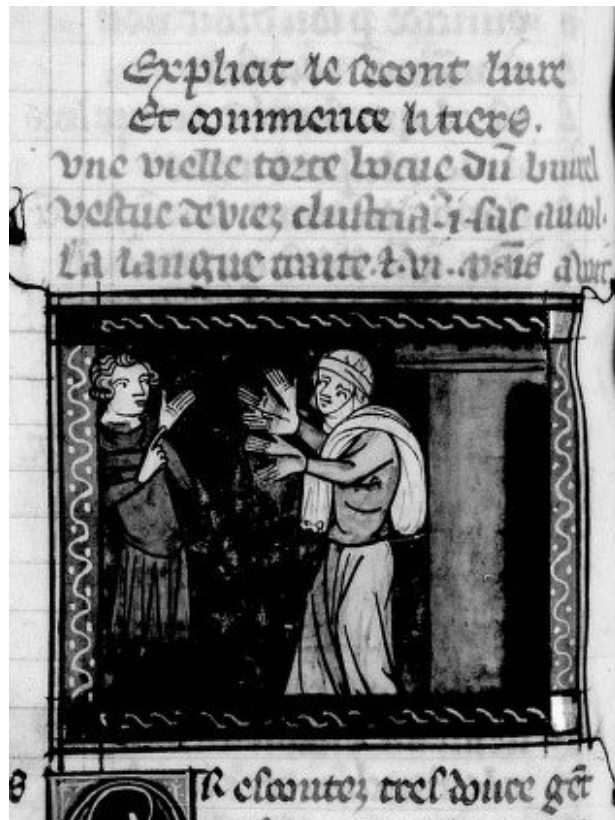 Explicit le secont liure
Et conmence li tiers.
vne vielle torte bocue dū burel
vestue de viez .i. sac au col.
La langue traite .⁊. vi. mais
OR escoutez tres douce gēt